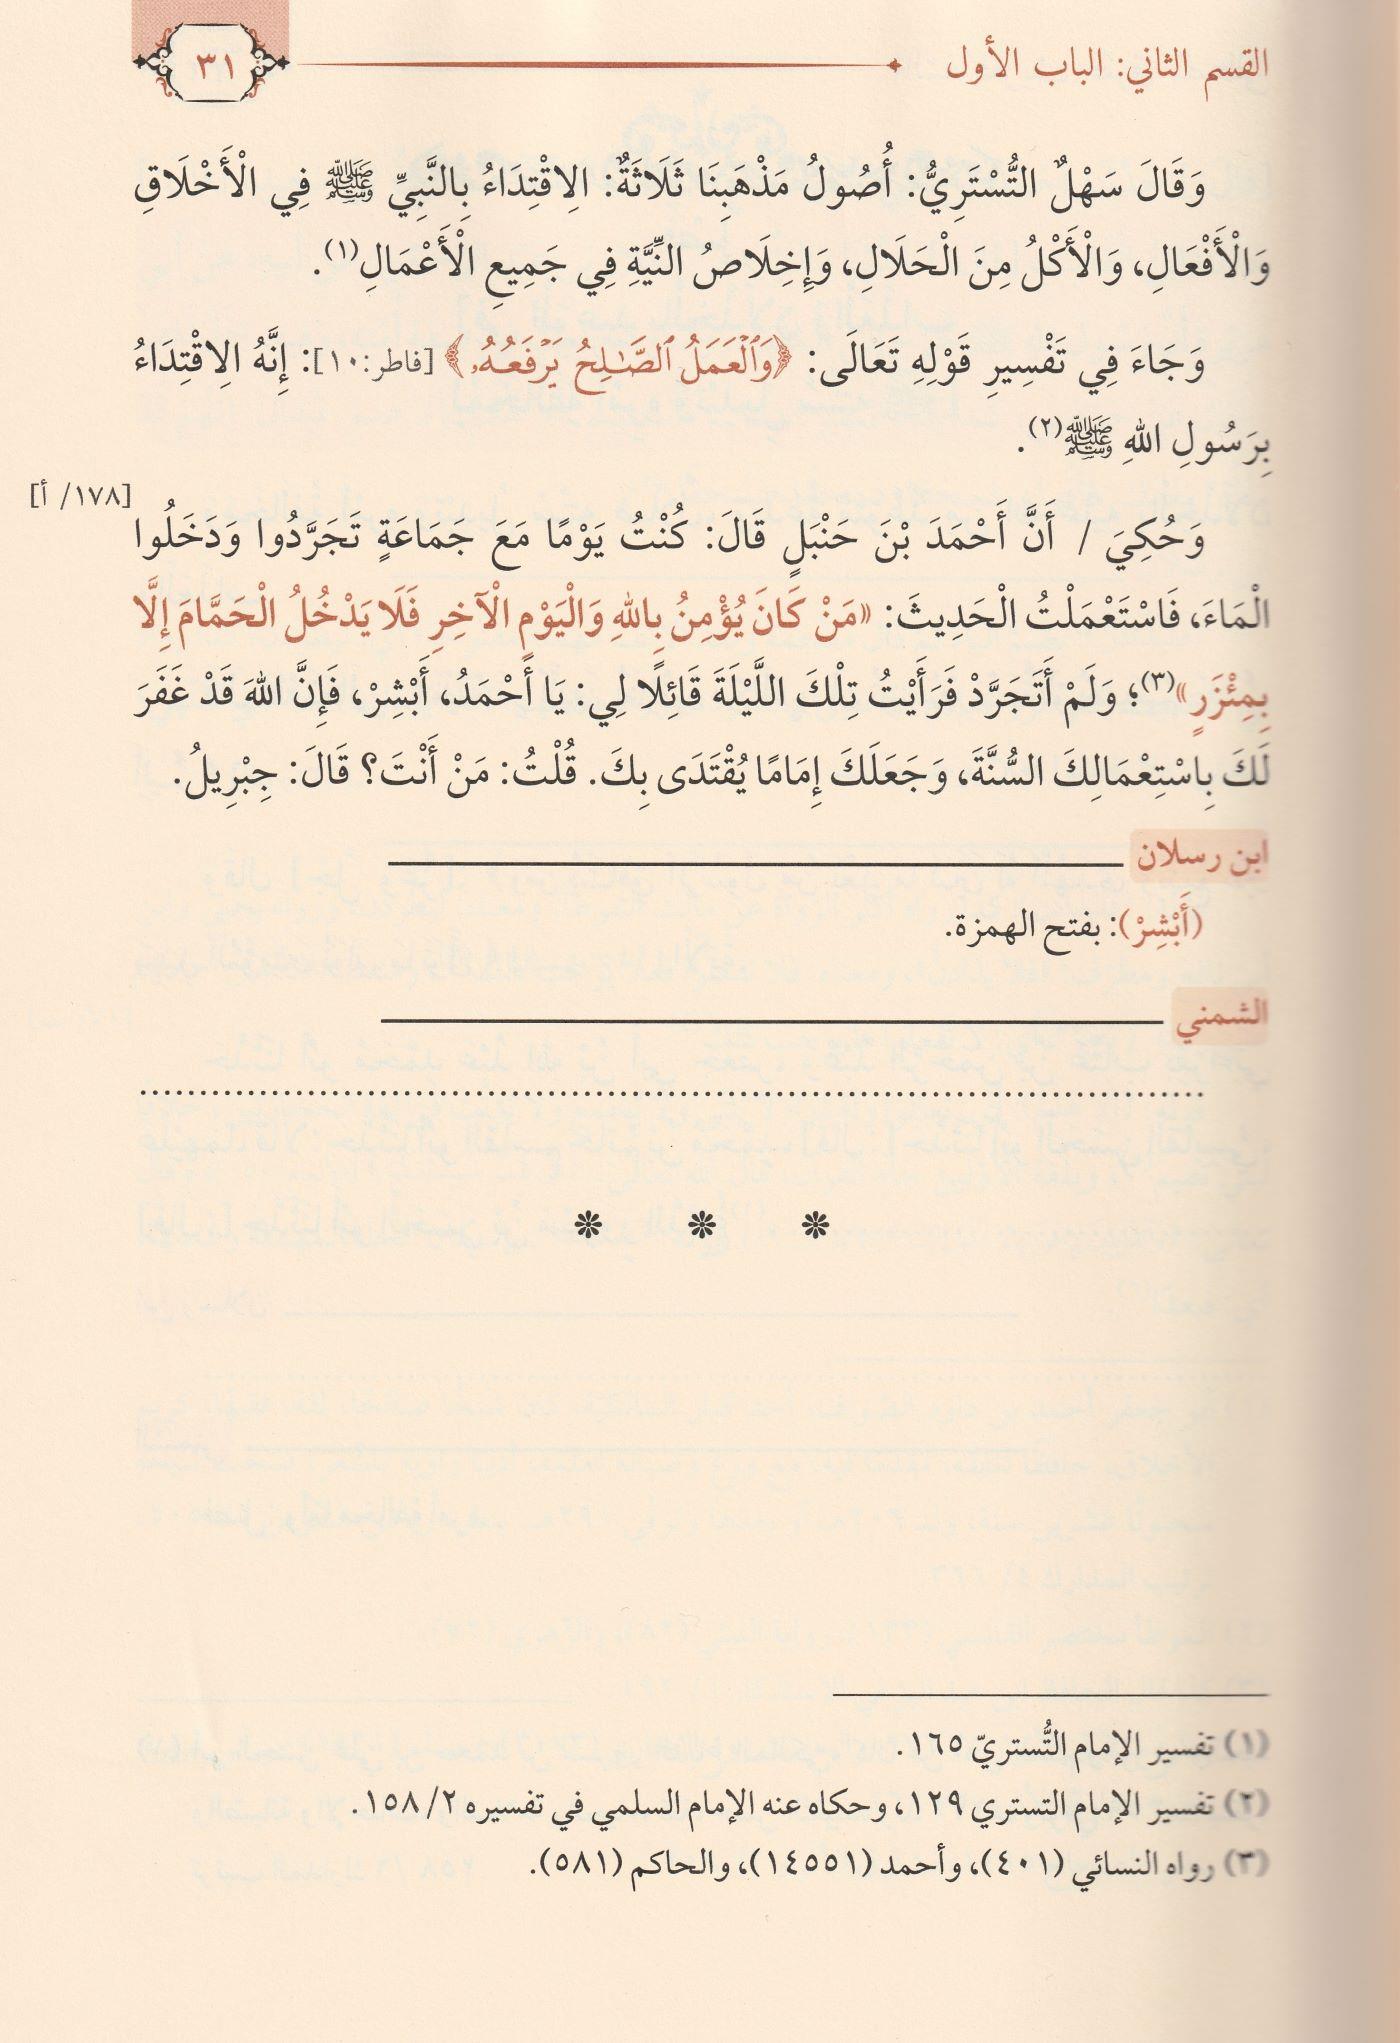 القسم الثاني: الباب الأول
٣١
وَقَالَ سَهْلٌ التُّسْتَرِيُّ: أُصُولُ مَذْهَبِنَا ثَلَاثَةٌ: الِاقْتِدَاءُ بِالنَّبِيِّ ﷺ فِي الْأَخْلَاقِ
وَالْأَفْعَالِ، وَالْأَكْلُ مِنَ الْحَلَالِ، وَإِخِلَاصُ النِّيَّةِ فِي جَمِيعِ الْأَعْمَالِ(١).
وَجَاءَ فِي تَفْسِيرِ قَوْلِهِ تَعَالَى: ﴿وَٱلْعَمَلُ ٱلصَّٰلِحُ يَرْفَعُهُۥ﴾ [فاطر:١٠]: إِنَّهُ الِاقْتِدَاءُ
بِرَسُولِ اللهِ ﷺ(٢).
[١٧٨/ أ]
وَحُكِيَ / أَنَّ أَحْمَدَ بْنَ حَنْبَلٍ قَالَ: كُنْتُ يَوْمًا مَعَ جَمَاعَةٍ تَجَرَّدُوا وَدَخَلُوا
الْمَاءَ، فَاسْتَعْمَلْتُ الْحَدِيثَ: «مَنْ كَانَ يُؤْمِنُ بِاللهِ وَالْيَوْمِ الْآخِرِ فَلَا يَدْخُلُ الْحَمَّامَ إِلَّا
بِمِئْزَرٍ»(٣)؛ وَلَمْ أَتَجَرَّدْ فَرَأَيْتُ تِلْكَ اللَّيْلَةَ قَائِلًا لِي: يَا أَحْمَدُ، أَبْشِرْ، فَإِنَّ اللهَ قَدْ غَفَرَ
لَكَ بِاسْتِعْمَالِكَ السُّنَّةَ، وَجَعَلَكَ إِمَامًا يُقْتَدَى بِكَ. قُلْتُ: مَنْ أَنْتَ؟ قَالَ: جِبْرِيلُ.
ابن رسلان
(أَبْشِرْ): بفتح الهمزة.
الشمني
(١) تفسير الإمام التُّستريّ ١٦٥.
(٢) تفسير الإمام التستري ١٢٩، وحكاه عنه الإمام السلمي في تفسيره ٢/ ١٥٨.
(٣) رواه النسائي (٤٠١)، وأحمد (١٤٥٥١)، والحاكم (٥٨١).